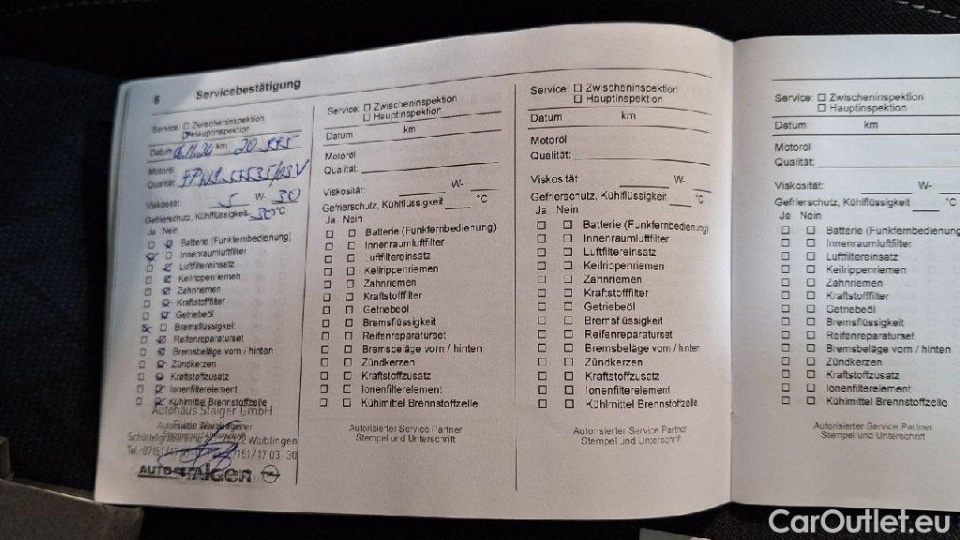 6 Servicebestätigung
Service: ☐ Zwischeninspektion
Hauptinspektion
Datum km
Motoröl
Qualität:
Viskosität: 5 W- 30
Gefrierschutz, Kühlflüssigkeit -30 °C
Ja Nein
Batterie (Funkfernbedienung)
Innenraumluftfilter
Luftfiltereinsatz
Keilrippenriemen
Zahnriemen
Kraftstofffilter
Getriebeöl
Bremsflüssigkeit
Reifenreparaturset
Bremsbeläge vorn / hinten
Zündkerzen
Kraftstoffzusatz
Ionenfilterelement
Kühlmittel Brennstoffzelle
Autohaus Staiger GmbH
Waiblingen
Tel.
AUTO STAIGER
Service: ☐ Zwischeninspektion
☐ Hauptinspektion
Datum km
Motoröl
Qualität:
Viskosität: W-
Gefrierschutz, Kühlflüssigkeit °C
Ja Nein
☐ ☐ Batterie (Funkfernbedienung)
☐ ☐ Innenraumluftfilter
☐ ☐ Luftfiltereinsatz
☐ ☐ Keilrippenriemen
☐ ☐ Zahnriemen
☐ ☐ Kraftstofffilter
☐ ☐ Getriebeöl
☐ ☐ Bremsflüssigkeit
☐ ☐ Reifenreparaturset
☐ ☐ Bremsbeläge vorn / hinten
☐ ☐ Zündkerzen
☐ ☐ Kraftstoffzusatz
☐ ☐ Ionenfilterelement
☐ ☐ Kühlmittel Brennstoffzelle
Autorisierter Service Partner
Stempel und Unterschrift
Service: ☐ Zwischeninspektion
☐ Hauptinspektion
Datum km
Motoröl
Qualität:
Viskosität W-
Gefrierschutz, Kühlflüssigkeit °C
Ja Nein
☐ ☐ Batterie (Funkfernbedienung)
☐ ☐ Innenraumluftfilter
☐ ☐ Luftfiltereinsatz
☐ ☐ Keilrippenriemen
☐ ☐ Zahnriemen
☐ ☐ Kraftstofffilter
☐ ☐ Getriebeöl
☐ ☐ Bremsflüssigkeit
☐ ☐ Reifenreparaturset
☐ ☐ Bremsbeläge vorn / hinten
☐ ☐ Zündkerzen
☐ ☐ Kraftstoffzusatz
☐ ☐ Ionenfilterelement
☐ ☐ Kühlmittel Brennstoffzelle
Autorisierter Service Partner
Stempel und Unterschrift
Service: ☐ Zwischeninspektion
☐ Hauptinspektion
Datum km
Motoröl
Qualität:
Viskosität: W-
Gefrierschutz, Kühlflüssigkeit °C
Ja Nein
☐ ☐ Batterie (Funkfernbedienung
☐ ☐ Innenraumluftfilter
☐ ☐ Luftfiltereinsatz
☐ ☐ Keilrippenriemen
☐ ☐ Zahnriemen
☐ ☐ Kraftstofffilter
☐ ☐ Getriebeöl
☐ ☐ Bremsflüssigkeit
☐ ☐ Reifenreparaturset
☐ ☐ Bremsbeläge vorn / hinten
☐ ☐ Zündkerzen
☐ ☐ Kraftstoffzusatz
☐ ☐ Ionenfilterelement
☐ ☐ Kühlmittel Brennstoffzelle
Autorisierter Service Partner
Stempel und Unterschrift
CarOutlet.eu